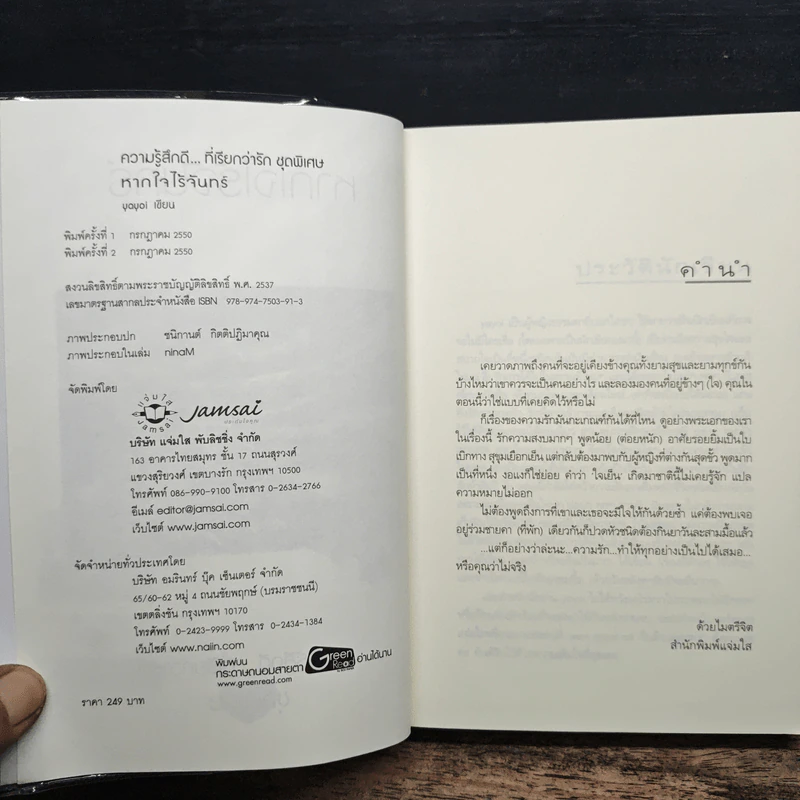 ความรู้สึกดี... ที่เรียกว่ารัก ชุดพิเศษ
หากใจไร้จันทร์
yayoi เขียน
พิมพ์ครั้งที่ 1 กรกฎาคม 2550
พิมพ์ครั้งที่ 2 กรกฎาคม 2550
สงวนลิขสิทธิ์ตามพระราชบัญญัติลิขสิทธิ์ พ.ศ. 2537
เลขมาตรฐานสากลประจำหนังสือ ISBN 978-974-7503-91-3
ภาพประกอบปก ชนิกานต์ กิตติปฏิมาคุณ
ภาพประกอบในเล่ม ninaM
จัดพิมพ์โดย
แจ่มใส
Jamsai
Jamsai
บริษัท แจ่มใส พับลิชชิ่ง จำกัด
163 อาคารไทยสมุทร ชั้น 17 ถนนสุรวงศ์
แขวงสุริยวงศ์ เขตบางรัก กรุงเทพฯ 10500
โทรศัพท์ 086-990-9100 โทรสาร 0-2634-2766
อีเมล์ editor@jamsai.com
เว็บไซต์ www.jamsai.com
จัดจำหน่ายทั่วประเทศโดย
บริษัท อมรินทร์ บุ๊ค เซ็นเตอร์ จำกัด
65/60-62 หมู่ 4 ถนนชัยพฤกษ์ (บรมราชชนนี)
เขตตลิ่งชัน กรุงเทพฯ 10170
โทรศัพท์ 0-2423-9999 โทรสาร 0-2434-1384
เว็บไซต์ www.naiin.com
พิมพ์บน
กระดาษถนอมสายตา Green Read อ่านได้นาน
www.greenread.com
ราคา 249 บาท
คำนำ
เคยวาดภาพถึงคนที่จะอยู่เคียงข้างคุณทั้งยามสุขและยามทุกข์กัน
บ้างไหมว่าเขาควรจะเป็นคนอย่างไร และลองมองคนที่อยู่ข้างๆ (ใจ) คุณใน
ตอนนี้ว่าใช่แบบที่เคยคิดไว้หรือไม่
ก็เรื่องของความรักมันกะเกณฑ์กันได้ที่ไหน ดูอย่างพระเอกของเรา
ในเรื่องนี้ รักความสงบมากๆ พูดน้อย (ต่อยหนัก) อาศัยรอยยิ้มเป็นใบ
เบิกทาง สุขุมเยือกเย็น แต่กลับต้องมาพบกับผู้หญิงที่ต่างกันสุดขั้ว พูดมาก
เป็นที่หนึ่ง งอแงก็ใช่ย่อย คำว่า 'ใจเย็น' เกิดมาชาตินี้ไม่เคยรู้จัก แปล
ความหมายไม่ออก
ไม่ต้องพูดถึงการที่เขาและเธอจะมีใจให้กันด้วยซ้ำ แค่ต้องพบเจอ
อยู่ร่วมชายคา (ที่พัก) เดียวกันก็ปวดหัวชนิดต้องกินยาวันละสามมื้อแล้ว
...แต่ก็อย่างว่าล่ะนะ...ความรัก...ทำให้ทุกอย่างเป็นไปได้เสมอ...
หรือคุณว่าไม่จริง
ด้วยไมตรีจิต
สำนักพิมพ์แจ่มใส